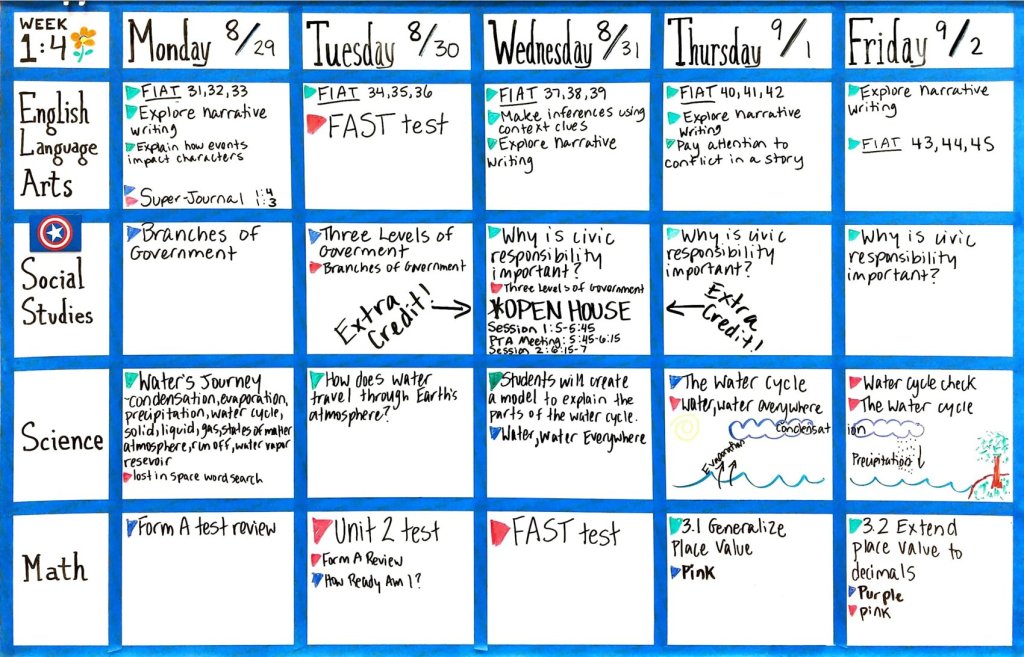 WEEK
1:4
Monday 8/29
Tuesday 8/30
Wednesday 8/31
Thursday 9/1
Friday 9/2
English
Language
Arts
FIAT 31,32,33
Explore narrative
writing
Explain how events
impact characters
Super-Journal 1:4
1:3
FIAT 34,35,36
FAST test
FIAT 37,38,39
Make inferences using
context clues
Explore narrative
writing
FIAT 40,41,42
Explore narrative
writing
Pay attention to
conflict in a story
Explore narrative
writing
FIAT 43,44,45
Social
Studies
Branches of
Government
Three Levels of
Goverment
Branches of Government
Extra
Credit!
Why is civic
responsibility
important?
Three Levels of Government
*OPEN HOUSE
Session 1:5-5:45
PTA Meeting: 5:45-6:15
Session 2:6:15-7
Why is civic
responsibility
important?
Extra
Credit!
Why is civic
responsibility
important?
Science
Water's Journey
-condensation, evaporation,
precipitation, water cycle,
solid, liquid, gas, states of matter
atmosphere, run off, water vapor
resevoir
lost in space word search
How does water
travel through Earth's
atmosphere?
Students will create
a model to explain the
parts of the water cycle.
Water, Water Everywhere
The Water Cycle
Water, water everywhere
Condensat
Evaporation
Water cycle check
The Water cycle
ion
Precipitation
Math
Form A test review
Unit 2 test
Form A Review
How Ready Am I?
FAST test
3.1 Generalize
Place Value
Pink
3.2 Extend
place value to
decimals
Purple
pink